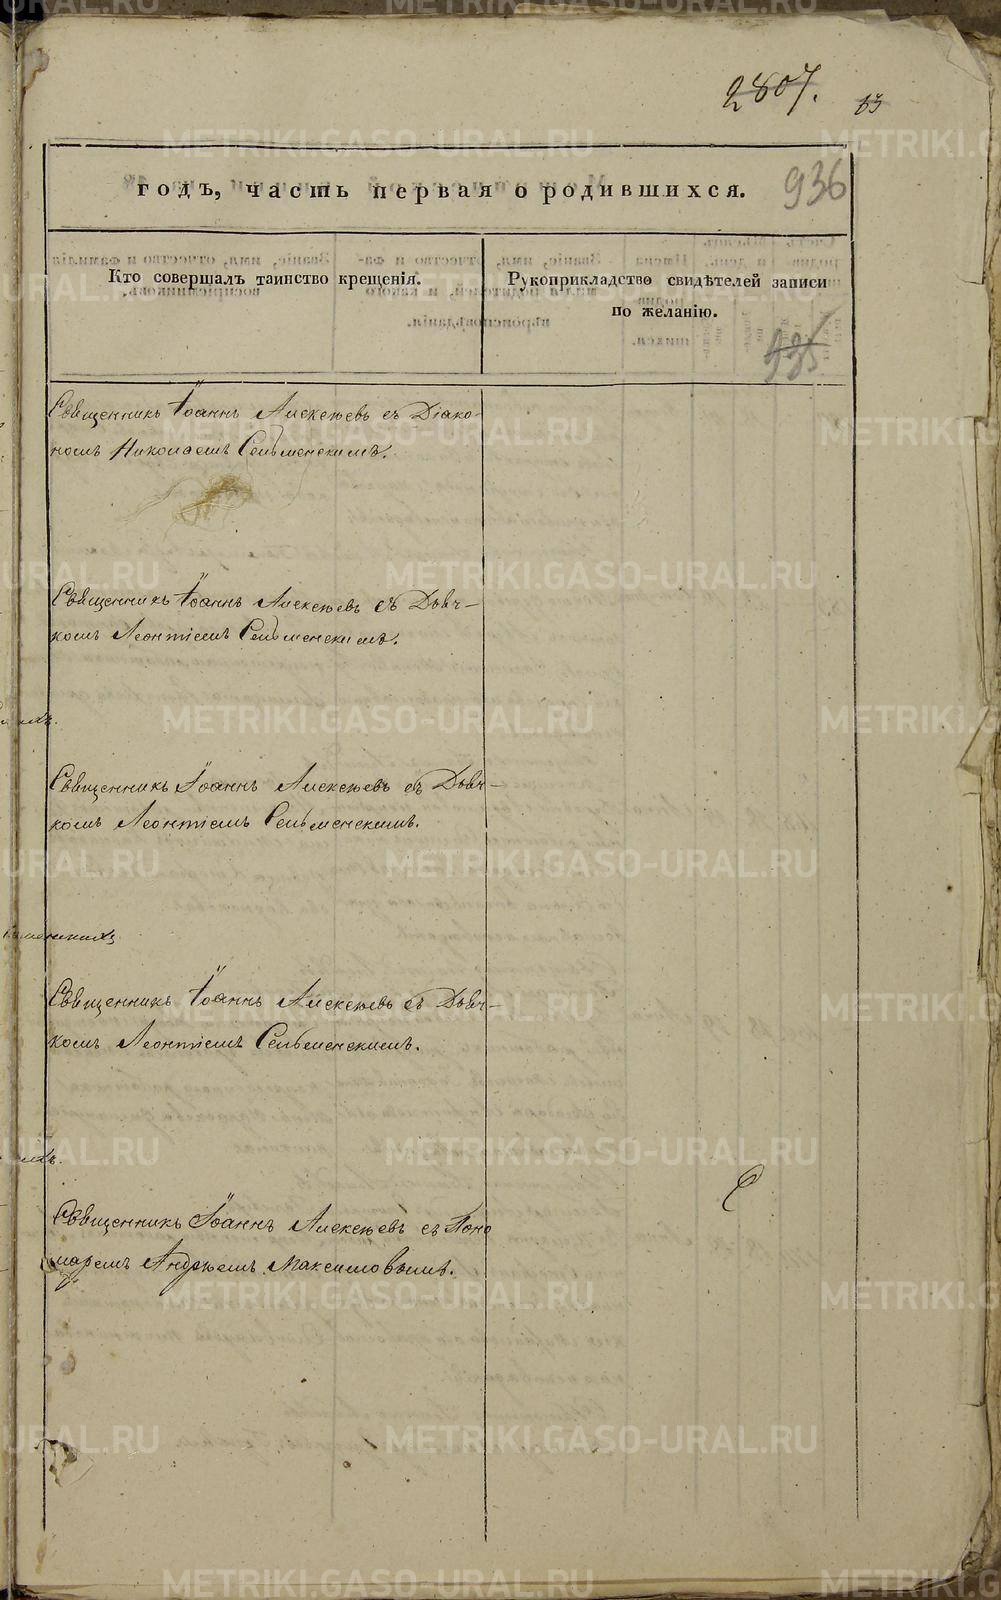 2807.
83
936
годъ, часть первая о родившихся.
Кто совершалъ таинство крещенія.
Рукоприкладство свидѣтелей записи
по желанію.
935
Священникъ Іоаннъ Алексѣевъ съ Діако-
номъ Николаемъ Сельменскимъ.
Священникъ Іоаннъ Алексѣевъ съ Дьяч-
комъ Леонтіемъ Сельменскимъ.
Священникъ Іоаннъ Алексѣевъ съ Дьяч-
комъ Леонтіемъ Сельменскимъ.
Священникъ Іоаннъ Алексѣевъ съ Дьяч-
комъ Леонтіемъ Сельменскимъ.
Священникъ Іоаннъ Алексѣевъ съ Поно
маремъ Андрѣемъ Максимовымъ.
METRIKI.GASO-URAL.RU